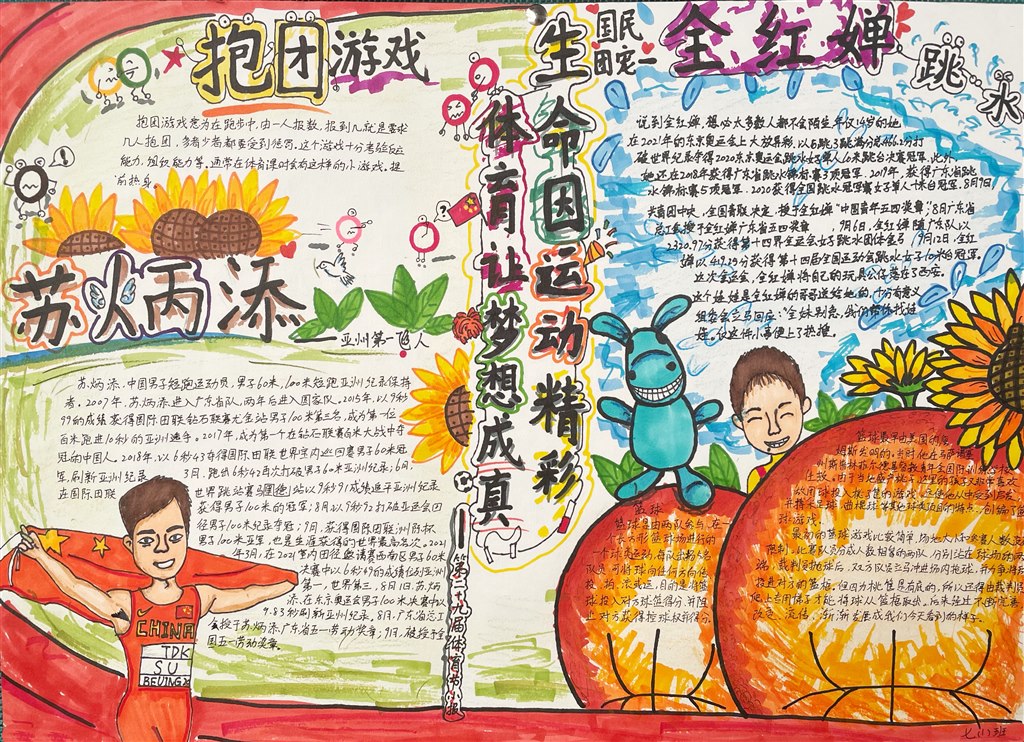 抱团游戏
抱团游戏意为在跑步中,由一人报数,报到几就是要求
几人抱团,多者少者都要受到惩罚,这个游戏十分考验反应
能力,组织能力等,通常在体育课时会有这样的小游戏。提
前热身
苏炳添
亚洲第一飞人
苏炳添,中国男子短跑运动员,男子60米,100米短跑亚洲纪录保持
者。2007年,苏炳添进入广东省队,两年后进入国家队。2015年,以9秒
99的成绩获得国际田联钻石联赛尤金站男子100米第三名,成为第一位
百米跑进10秒的亚洲选手。2017年,成为第一个在钻石联赛百米大战中夺
冠的中国人。2018年,以6秒43夺得国际田联世界室内巡回赛男子60米冠
军,刷新亚洲纪录
3月,跑出6秒42再次打破男子60米亚洲纪录;6月,
在国际田联
世界挑战赛马德里站以9秒91成绩追平亚洲纪录
获得男子100米的冠军;8月以9秒92打破亚运会田
径男子100米纪录夺冠;9月,获得国际田联洲际杯
男子100米亚军,也是生涯获得的世界最高名次。2021
年3月,在2021室内田径邀请赛西南区男子60米
决赛中以6秒49的成绩位列亚洲
第一,世界第三,8月1日,苏炳
添,在东京奥运会男子100米半决赛中以
9.83秒刷新亚洲纪录。8月,广东省总工
会授予苏炳添广东省五一劳动奖章;9月,被授予全
国五一劳动奖章。
CHINA
TDK
SU
BEIJING
体育让梦想成真
生命因运动精彩
第二十九届体育节小报
国民
团宠一
全红婵
跳水
说到全红婵,想必太多数人都不会陌生,年仅14岁的她,
在2021年的东京奥运会上大放异彩,以5跳3跳满分总466.2分打
破世界纪录夺得2020东京奥运会跳水女子单人10米跳台决赛冠军,此外,
她还在2018年获得广东省跳水锦标赛3项冠军,2017年,获得广东省跳
水锦标赛5项冠军,2020获得全国跳水冠军赛女子单人十米台冠军,8月7日,
共青团中央,全国青联决定,授予全红婵"中国青年五四奖章",8月广东省
总工会授予全红婵广东省五四奖章
,9月6日,全红婵随广东队以
2320.97分获得第十四界全运会女子跳水团体金马,9月12日,全红
婵以419.25分获得第十四届全国运动会跳水女子10米台冠军。
这次全运会,全红婵将自己的玩具公仔落在了西安。
这个娃娃是全红婵的哥哥送给她的,十分有意义
组委会立马回应:"全妹别急,我们帮你找娃
娃。仅这件小事便上了热搜。
篮球
篮球是由两队参与,在一
个长方形篮球场进行的
一个球类运动,每队出场5名
队员,可将球向任何方向传
投,拍,滚或运,目的是将篮
球投入对方球篮得分,并阻
止对方获得控球权并得分。
最初的篮球游戏比较简单,场地大小和参赛人数没有
限制,比赛双方成人数相等的两队,分别站在球场的两
端,裁判员抛球后,双方队员立马冲进场内抢球,并力争将球
投进对方的篮筐,但因为桃筐是有底的,所以还得由裁判员
爬上专用梯子才能将球从篮筐取出,后来经过不断完善
改之,流传,渐渐发展成我们今天看到的样子。
七(1)班